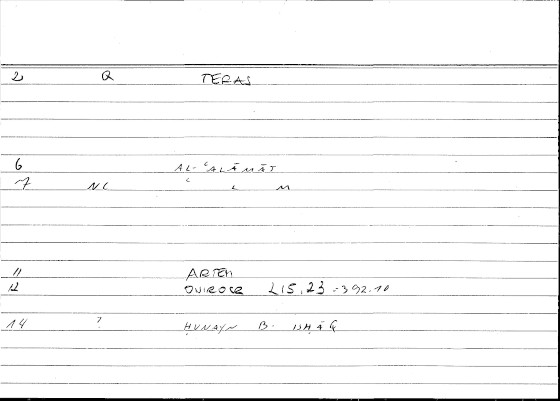 2 Q TERAS
6 AL-ʿALĀMĀT
7 NL ʿ L M
11 ARTEM
12 OUIROCR 215,23 = 392.10
14 ? ḤUNAYN B. ISḤĀQ